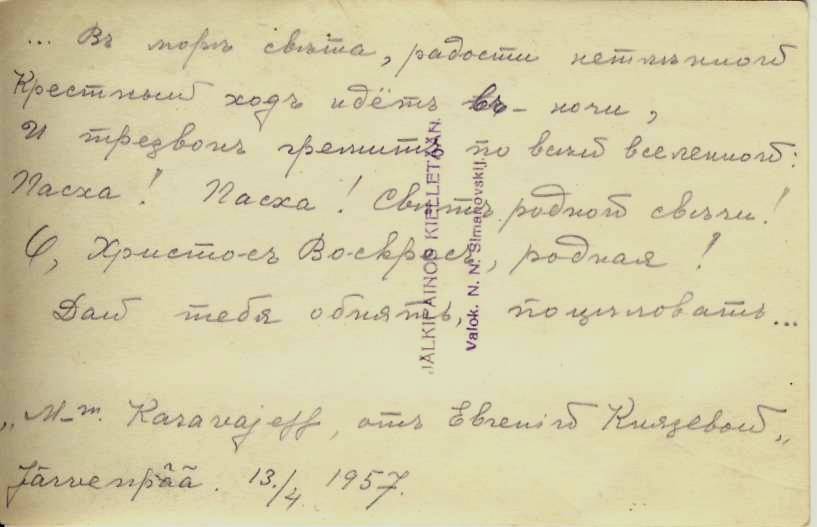 ... Въ морѣ свѣта, радости нетлѣнной
Крестный ходъ идётъ въ ночи,
И трезвонъ гремитъ по всей вселенной:
Пасха! Пасха! Свѣтъ родной свѣчи!
О, Христосъ Воскресъ, родная!
Дай тебя обнять, поцѣловать...
„M-m. Karavajeff, отъ Евгенiй Князевой„
Järvenpää. 13./4 1957.
JÄLKIPAINOS KIELLETÄÄN.
Valok. N. N. Simanovskij.